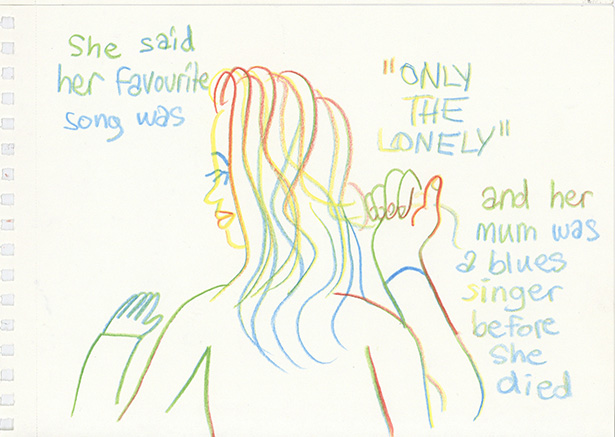 She said
her favourite
song was
"ONLY
THE
LONELY"
and her
mum was
a blues
singer
before
She
died